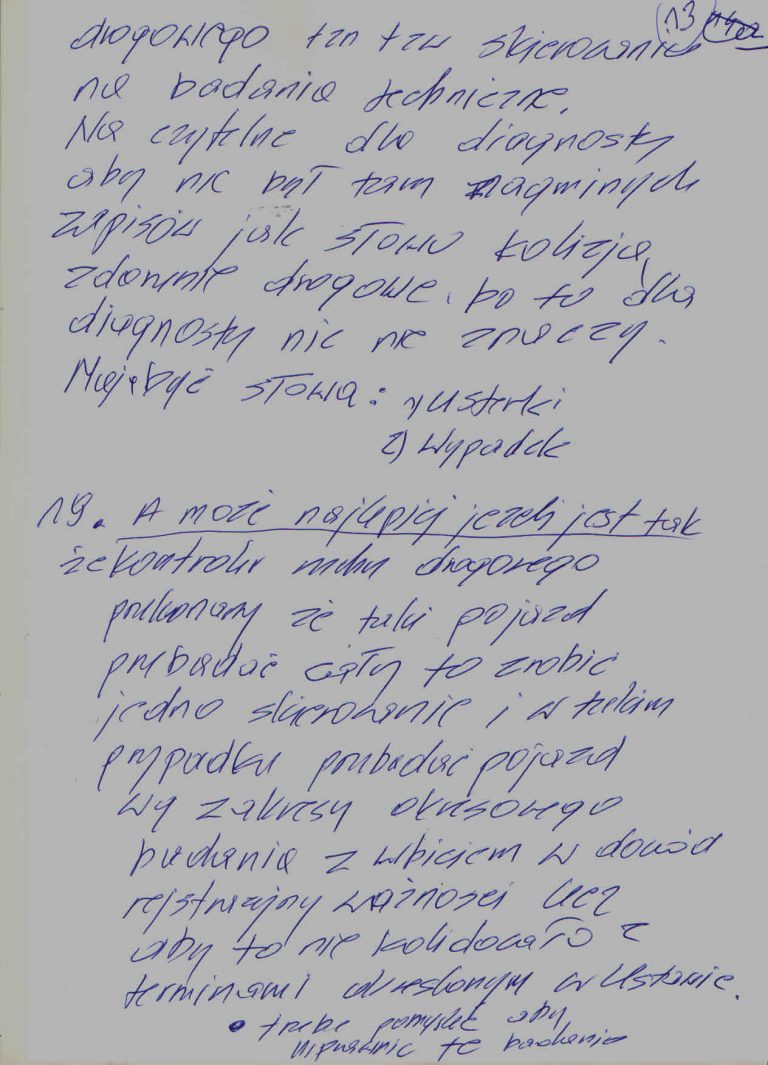 13
drogowego tzn tzw skierowanie
na badania techniczne.
Na czytelne dla diagnosty
aby nie był tam nagminych
zapisów jak słowo kolizja,
zdarznie drogowe. bo to dla
diagnosty nic nie znaczy.
Mają być słowa: 1) Usterki
2) Wypadek
19. A może najlepiej jeżeli jest tak
że kontroler ruchu drogowego
przekonany że taki pojazd
przebadać cały to zrobić
jedno skierowanie i w takim
przypadku przebadać pojazd
wg zakresu okresowego
badania z wbiciem w dowód
rejstracyjny ważności lecz
aby to nie kolidowało z
terminami określonym w Ustawie.
• trzeba pomyśleć aby
usprawnić te badania